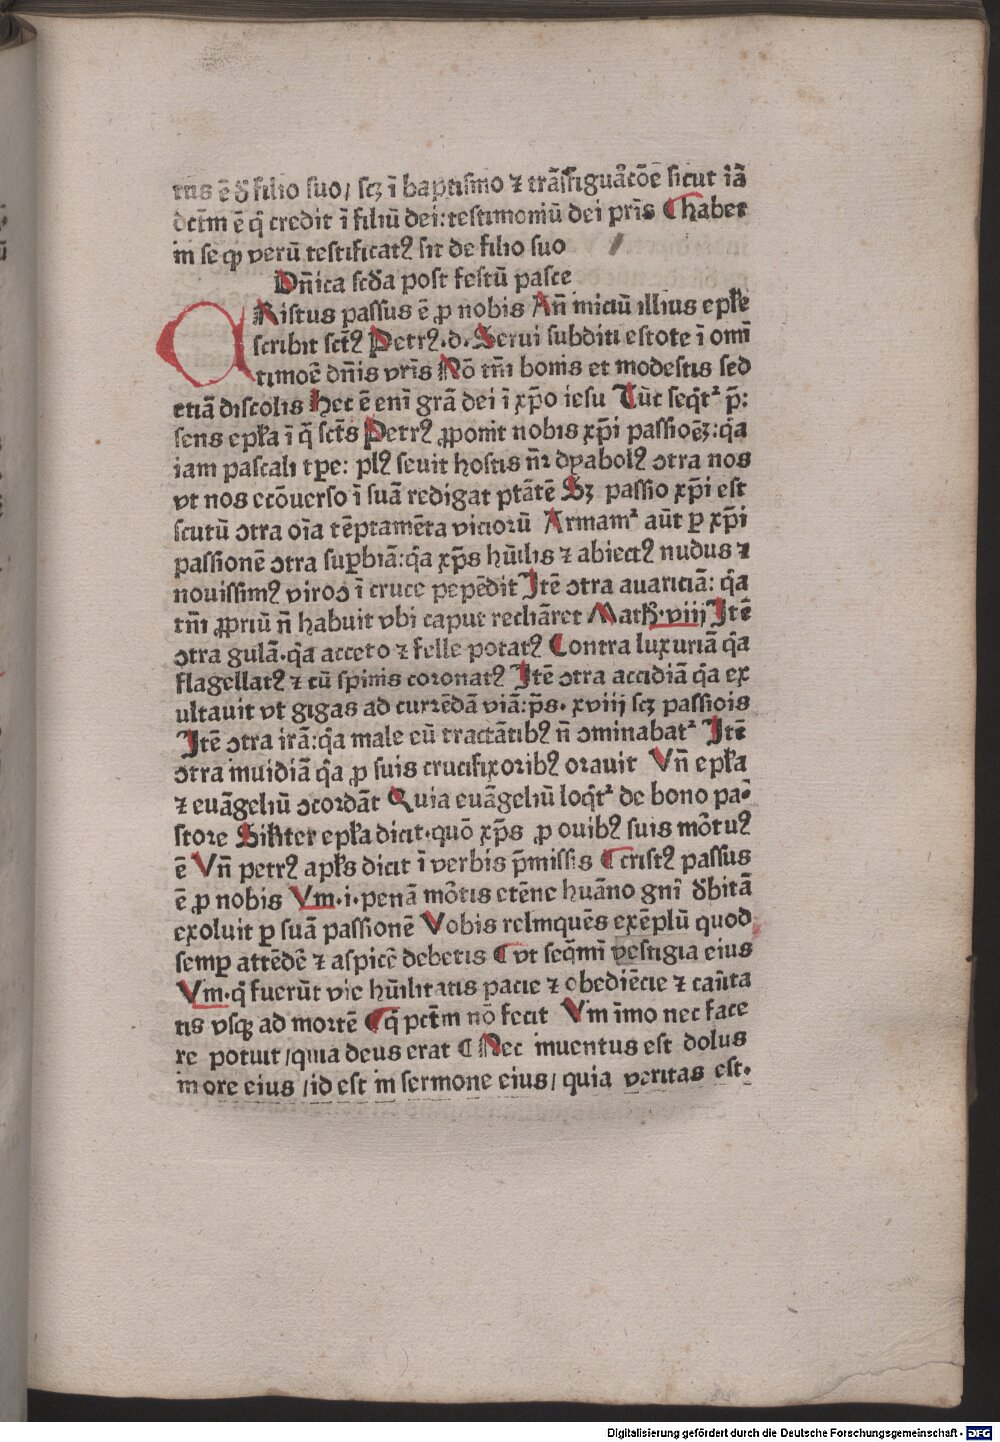 tus ē ꝺ̄ filio suo/ scꝫ ī baptismo ⁊ trāsfiguᷓacōe sicut iā
dctm̄ ē q̇ credit ī filiū dei: testimoniū dei pr̄is ¶ habet
in se qꝫ verū testificatꝰ sit de filio suo
Dn̄ica scd̄a post festū pasce
Ristus passus ē ꝓ nobis An̄ iniciū illius epl̄e
scribit sct̄ꝰ Petrꝰ.d. Serui subditi estote ī omī
timoē dn̄is vr̄is Nō tm̄ bonis et modestis sed
etiā discolis Hec ē enī grā dei ī xp̄o iesu Tūc seqt̄ᷣ p̄:
sens epl̄a ī q̄ sct̄s Petrꝰ ꝓponit nobis xp̄i passioēꝫ: qᷓa
iam pascali tp̄e: plꝰ seuit hostis nr̄ dyabolꝰ ↄtra nos
vt nos ecōuerso ī suā redigat ptātē Sꝫ passio xp̄i est
scutū ↄtra oīa tēptamēta viciorū Armamᷣ aūt ꝑ xp̄i
passionē ↄtra supbiā: qᷓa xp̄s hūilis ⁊ abiectꝰ nudus ⁊
nouissimꝰ viroↄ ī cruce pepēdit Itē ↄtra auariciā: qᷓa
tm̄ ꝓpriū n̄ habuit vbi caput reclīaret Math̄.viij Itē
ↄtra gulā. qᷓa acceto ⁊ felle potatꝰ Contra luxuriā qᷓa
flagellatꝰ ⁊ cū spinis coronatꝰ Itē ↄtra accidiā qᷓa ex
ultauit vt gigas ad currēdā viā: ps̄. xviij scꝫ passiōis
Itē ↄtra irā: qᷓa male eū tractātibꝰ n̄ ↄminabatᷣ Itē
ↄtra inuidiā qᷓa ꝓ suis crucifixoribꝰ orauit Vn̄ epl̄a
⁊ euāgeliū ↄcordāt Quia euāgeliū loqt̄ᷣ de bono pa-
store Silr̄ter epl̄a dicit. quō xp̄s ꝓ ouibꝰ suis mōtuꝰ
ē Vn̄ petrꝰ apl̄s dicit ī verbis p̄missis ¶ cristꝰ passus
ē ꝓ nobis Vm̄.i. penā mōtis etēne huāno gn̄i dꝺ̄bitā
exoluit ꝑ suā passionē Vobis relinquēs exēplū quod
semꝑ attēdē ⁊ aspicē debetis ¶ vt seqm̄ī vestigia eius
Vm̄. q̄ fuerūt vie hūilitatis pacie ⁊ obediēcie ⁊ carīta
tis vsqꝫ ad mortē ¶ q̇ pctm̄ nō fecit Vm̄ īmo nec face
re potuit/quia deus erat ¶ Nec inuentus est dolus
in ore eius /id est in sermone eius/ quia veritas est.
Digitalisierung gefördert durch die Deutsche Forschungsgemeinschaft - DFG